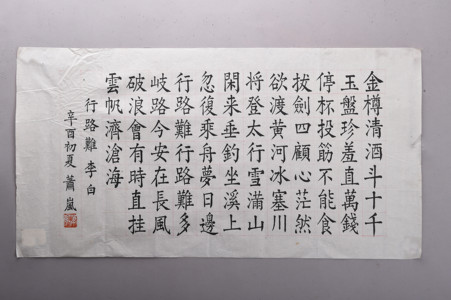 金樽清酒斗十千
玉盤珍羞直萬錢
停杯投筯不能食
拔劍四顧心茫然
欲渡黄河冰塞川
将登太行雪滿山
閑来垂釣坐溪上
忽復乘舟夢日邊
行路難行路難多
岐路今安在長風
破浪會有時直挂
雲帆濟滄海
行路難 李白
辛酉初夏 蕭嵐